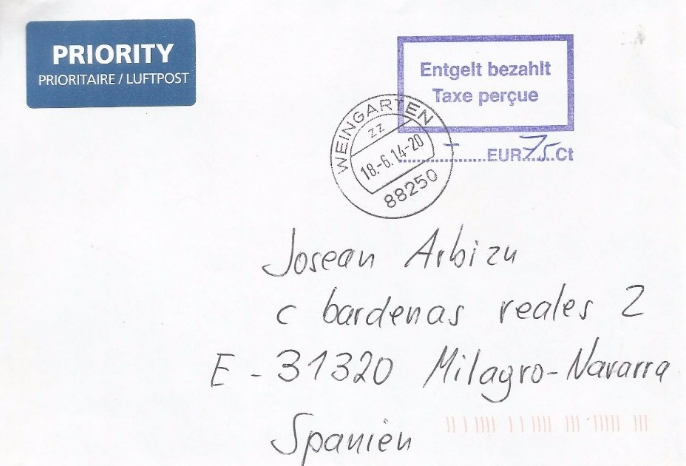 PRIORITY
PRIORITAIRE / LUFTPOST
Entgelt bezahlt
Taxe perçue
EUR 75 Ct
WEINGARTEN
zz
18.-6.14-20
88250
Josean Arbizu
c bardenas reales 2
E - 31320 Milagro-Navarra
Spanien